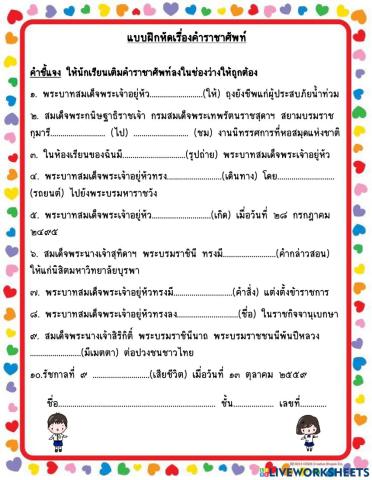 แบบฝึกหัดเรื่องคำราชาศัพท์
คำชี้แจง ให้นักเรียนเติมคำราชาศัพท์ลงในช่องว่างให้ถูกต้อง
๑. พระบาทสมเด็จพระเจ้าอยู่หัว........................(ให้) ถุงยังชีพแก่ผู้ประสบภัยน้ำท่วม
๒. สมเด็จพระกนิษฐาธิราชเจ้า กรมสมเด็จพระเทพรัตนราชสุดาฯ สยามบรมราช
กุมารี........................ (ไป) ........................ (ชม) งานนิทรรศการที่หอสมุดแห่งชาติ
๓. ในห้องเรียนของฉันมี............................(รูปถ่าย) พระบาทสมเด็จพระเจ้าอยู่หัว
๔. พระบาทสมเด็จพระเจ้าอยู่หัวทรง........................(เดินทาง) โดย........................
(รถยนต์) ไปยังพระบรมมหาราชวัง
๕. พระบาทสมเด็จพระเจ้าอยู่หัว........................(เกิด) เมื่อวันที่ ๒๘ กรกฎาคม
๒๔๙๕
๖. สมเด็จพระนางเจ้าสุทิดาฯ พระบรมราชินี ทรงมี........................(คำกล่าวสอน)
ให้แก่นิสิตมหาวิทยาลัยบูรพา
๗. พระบาทสมเด็จพระเจ้าอยู่หัวทรงมี........................(คำสั่ง) แต่งตั้งข้าราชการ
๘. พระบาทสมเด็จพระเจ้าอยู่หัวทรงลง........................(ชื่อ) ในราชกิจจานุเบกษา
๙. สมเด็จพระนางเจ้าสิริกิติ์ พระบรมราชินีนาถ พระบรมราชชนนีพันปีหลวง
........................(มีเมตตา) ต่อปวงชนชาวไทย
๑๐.รัชกาลที่ ๙ ........................(เสียชีวิต) เมื่อวันที่ ๑๓ ตุลาคม ๒๕๕๙
ชื่อ................................................ ชั้น............ เลขที่............
LIVEWORKSHEETS